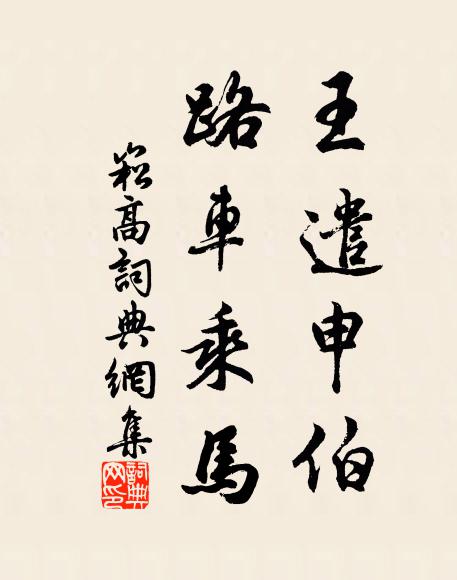 王遣申伯
路車乘馬
菘高詞典網集
詞典网印